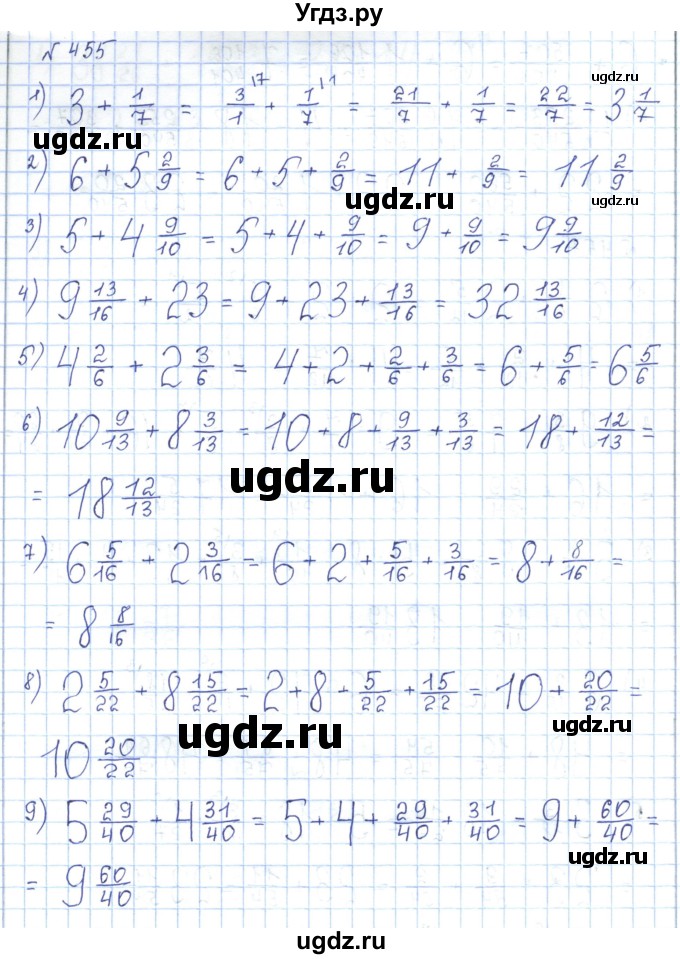 Угдз.ру
№ 455
1) 3 + 1/7 = 3/1 \7 + 1/7 \1 = 21/7 + 1/7 = 22/7 = 3 1/7
ugdz.ru
ugdz.ru
2) 6 + 5 2/9 = 6 + 5 + 2/9 = 11 + 2/9 = 11 2/9
ugdz.ru
3) 5 + 4 9/10 = 5 + 4 + 9/10 = 9 + 9/10 = 9 9/10
4) 9 13/16 + 23 = 9 + 23 + 13/16 = 32 13/16
5) 4 2/6 + 2 3/6 = 4 + 2 + 2/6 + 3/6 = 6 + 5/6 = 6 5/6
6) 10 9/13 + 8 3/13 = 10 + 8 + 9/13 + 3/13 = 18 + 12/13 =
= 18 12/13
ugdz.ru
7) 6 5/16 + 2 3/16 = 6 + 2 + 5/16 + 3/16 = 8 + 8/16 =
= 8 8/16
8) 2 5/22 + 8 15/22 = 2 + 8 + 5/22 + 15/22 = 10 + 20/22 =
ugdz.ru
ugdz.ru
10 20/22
9) 5 29/40 + 4 31/40 = 5 + 4 + 29/40 + 31/40 = 9 + 60/40 =
ugdz.ru
= 9 60/40
ugdz.ru